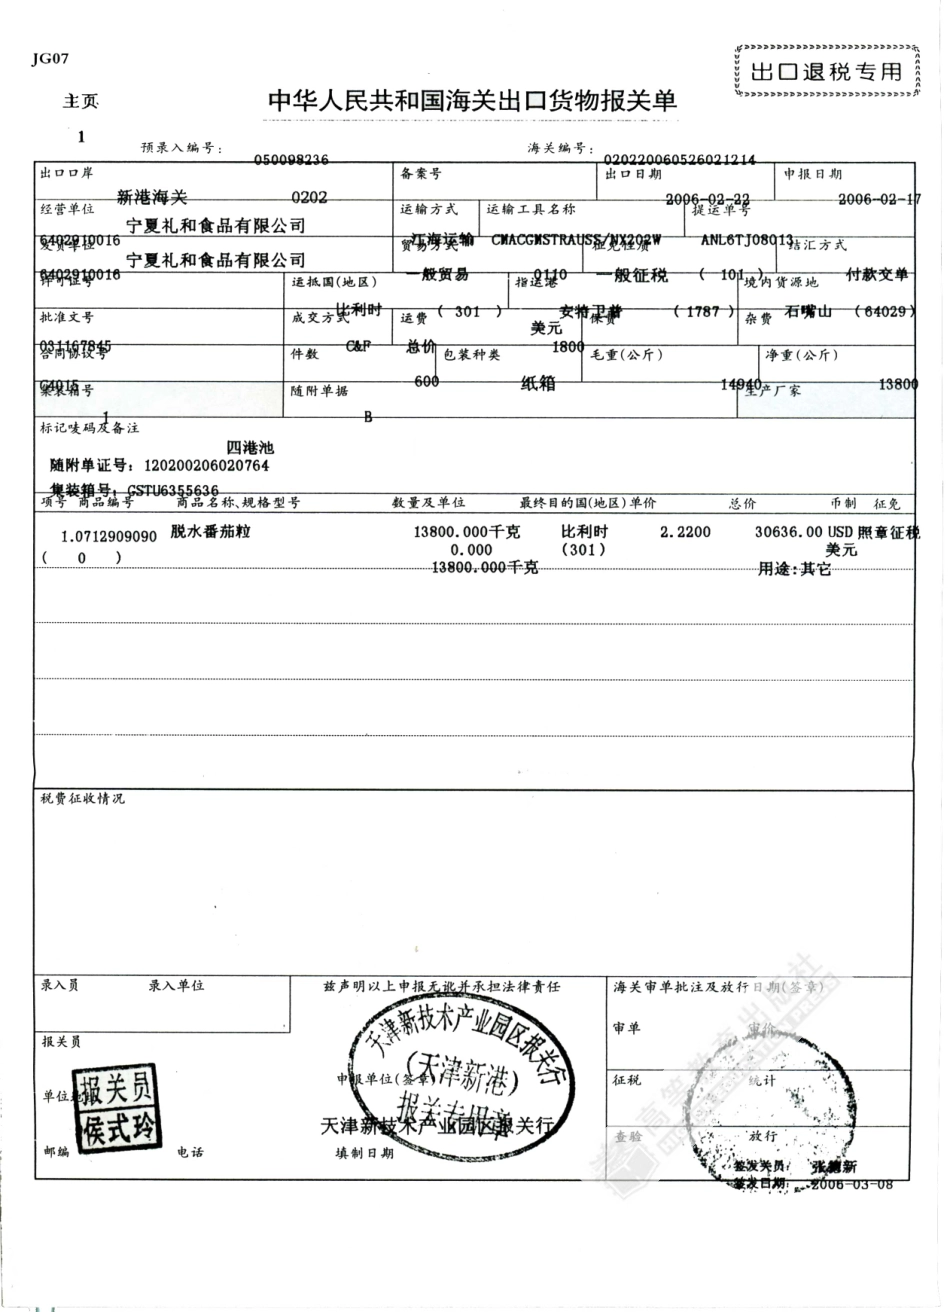 JG07
出口退税专用
主页
中华人民共和国海关出口货物报关单
1
预录入编号: 050098236 海关编号: 020220060526021214
出口口岸 备案号 出口日期 申报日期
新港海关 0202 2006-02-22 2006-02-17
经营单位 运输方式 运输工具名称 提运单号
宁夏礼和食品有限公司
6402910016 江海运输 CMACGMSTRAUSS/NX202W ANL6TJ08013
发货单位 贸易方式 征免性质 结汇方式
宁夏礼和食品有限公司
6402910016 一般贸易 0110 一般征税 ( 101 ) 付款交单
许可证号 运抵国(地区) 指运港 境内货源地
比利时 ( 301 ) 安特卫普 ( 1787 ) 石嘴山 (64029)
批准文号 成交方式 运费 保费 杂费
美元
031167845 C&F 总价 1800
合同协议号 件数 包装种类 毛重(公斤) 净重(公斤)
G4015 600 纸箱 14940 13800
集装箱号 随附单据 生产厂家
1 B
标记唛码及备注
四港池
随附单证号: 120200206020764
集装箱号: GSTU6355636
项号 商品编号 商品名称、规格型号 数量及单位 最终目的国(地区)单价 总价 币制 征免
1.0712909090 脱水番茄粒 13800.000千克 比利时 2.2200 30636.00 USD 照章征税
( 0 ) 0.000 (301) 美元
13800.000千克 用途:其它
税费征收情况
录入员 录入单位 兹声明以上申报无讹并承担法律责任 海关审单批注及放行日期(签章)
天津新技术产业园区报关行
(天津新港)
报关专用章
审单 审价
报关员
申报单位(签章) 征税 统计
单位地
报关员
侯式玲
天津新技术产业园区报关行 查验 放行
邮编 电话 填制日期
签发关员: 张德新
签发日期: 2006-03-08
高等教育出版社